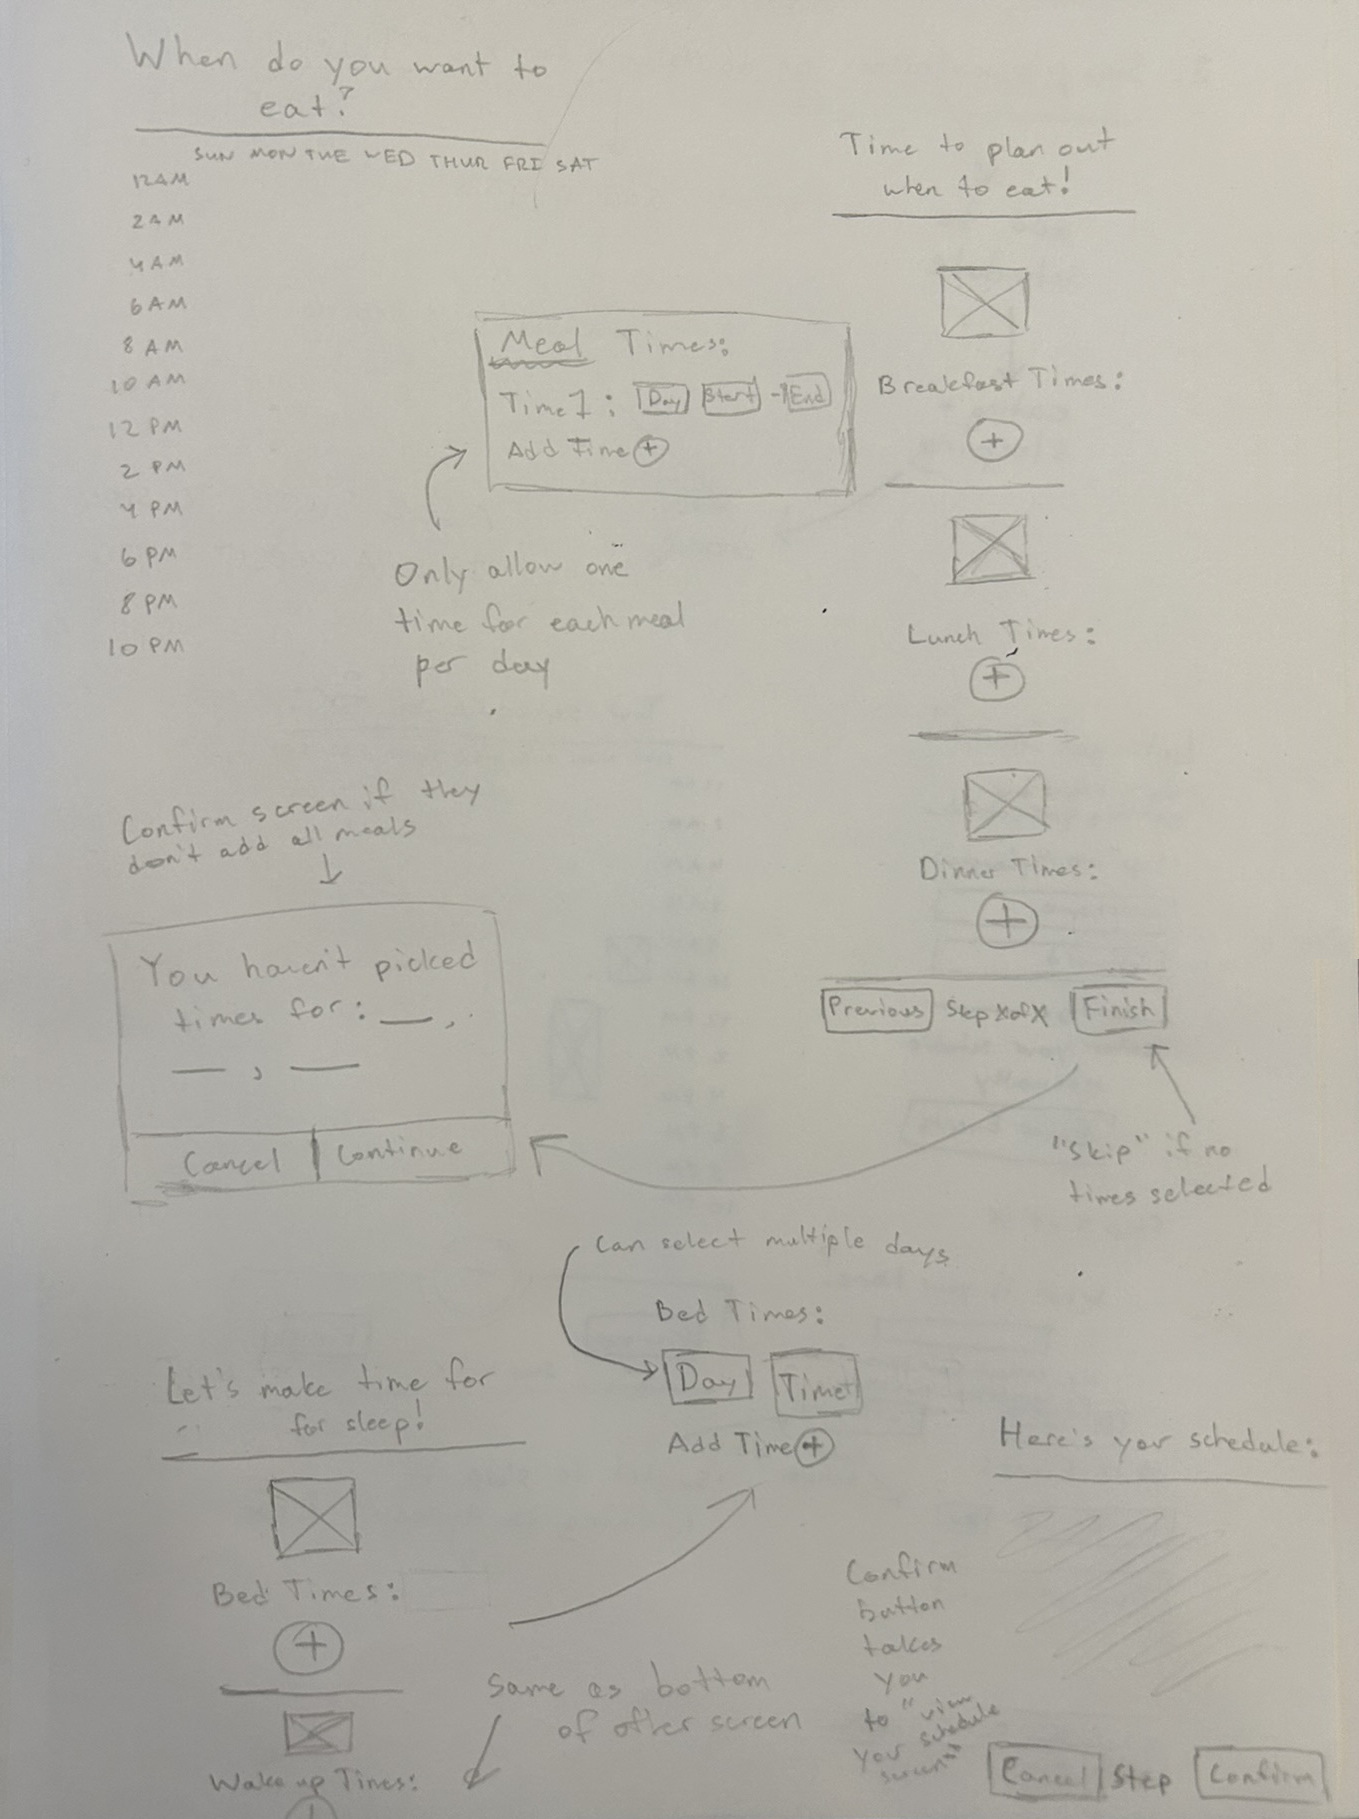 When do you want to
eat?
SUN MON TUE WED THUR FRI SAT
12AM
2AM
4AM
6AM
8AM
10AM
12PM
2PM
4PM
6PM
8PM
10PM
Meal Times:
Time1: Day Start - End
Add Time +
Only allow one
time for each meal
per day
Time to plan out
when to eat!
Breakfast Times:
+
Lunch Times:
+
Dinner Times:
+
Previous Step X of X Finish
"Skip" if no
times selected
Confirm screen if they
don't add all meals
You haven't picked
times for: __,
__, __
Cancel | Continue
Can select multiple days
Bed Times:
Day Time
Add Time +
Let's make time for
for sleep!
Bed Times:
+
Wake up Times:
+
Same as bottom
of other screen
Here's your schedule:
Confirm
button
takes
you
to "view
your schedule
screen"
Cancel Step Confirm